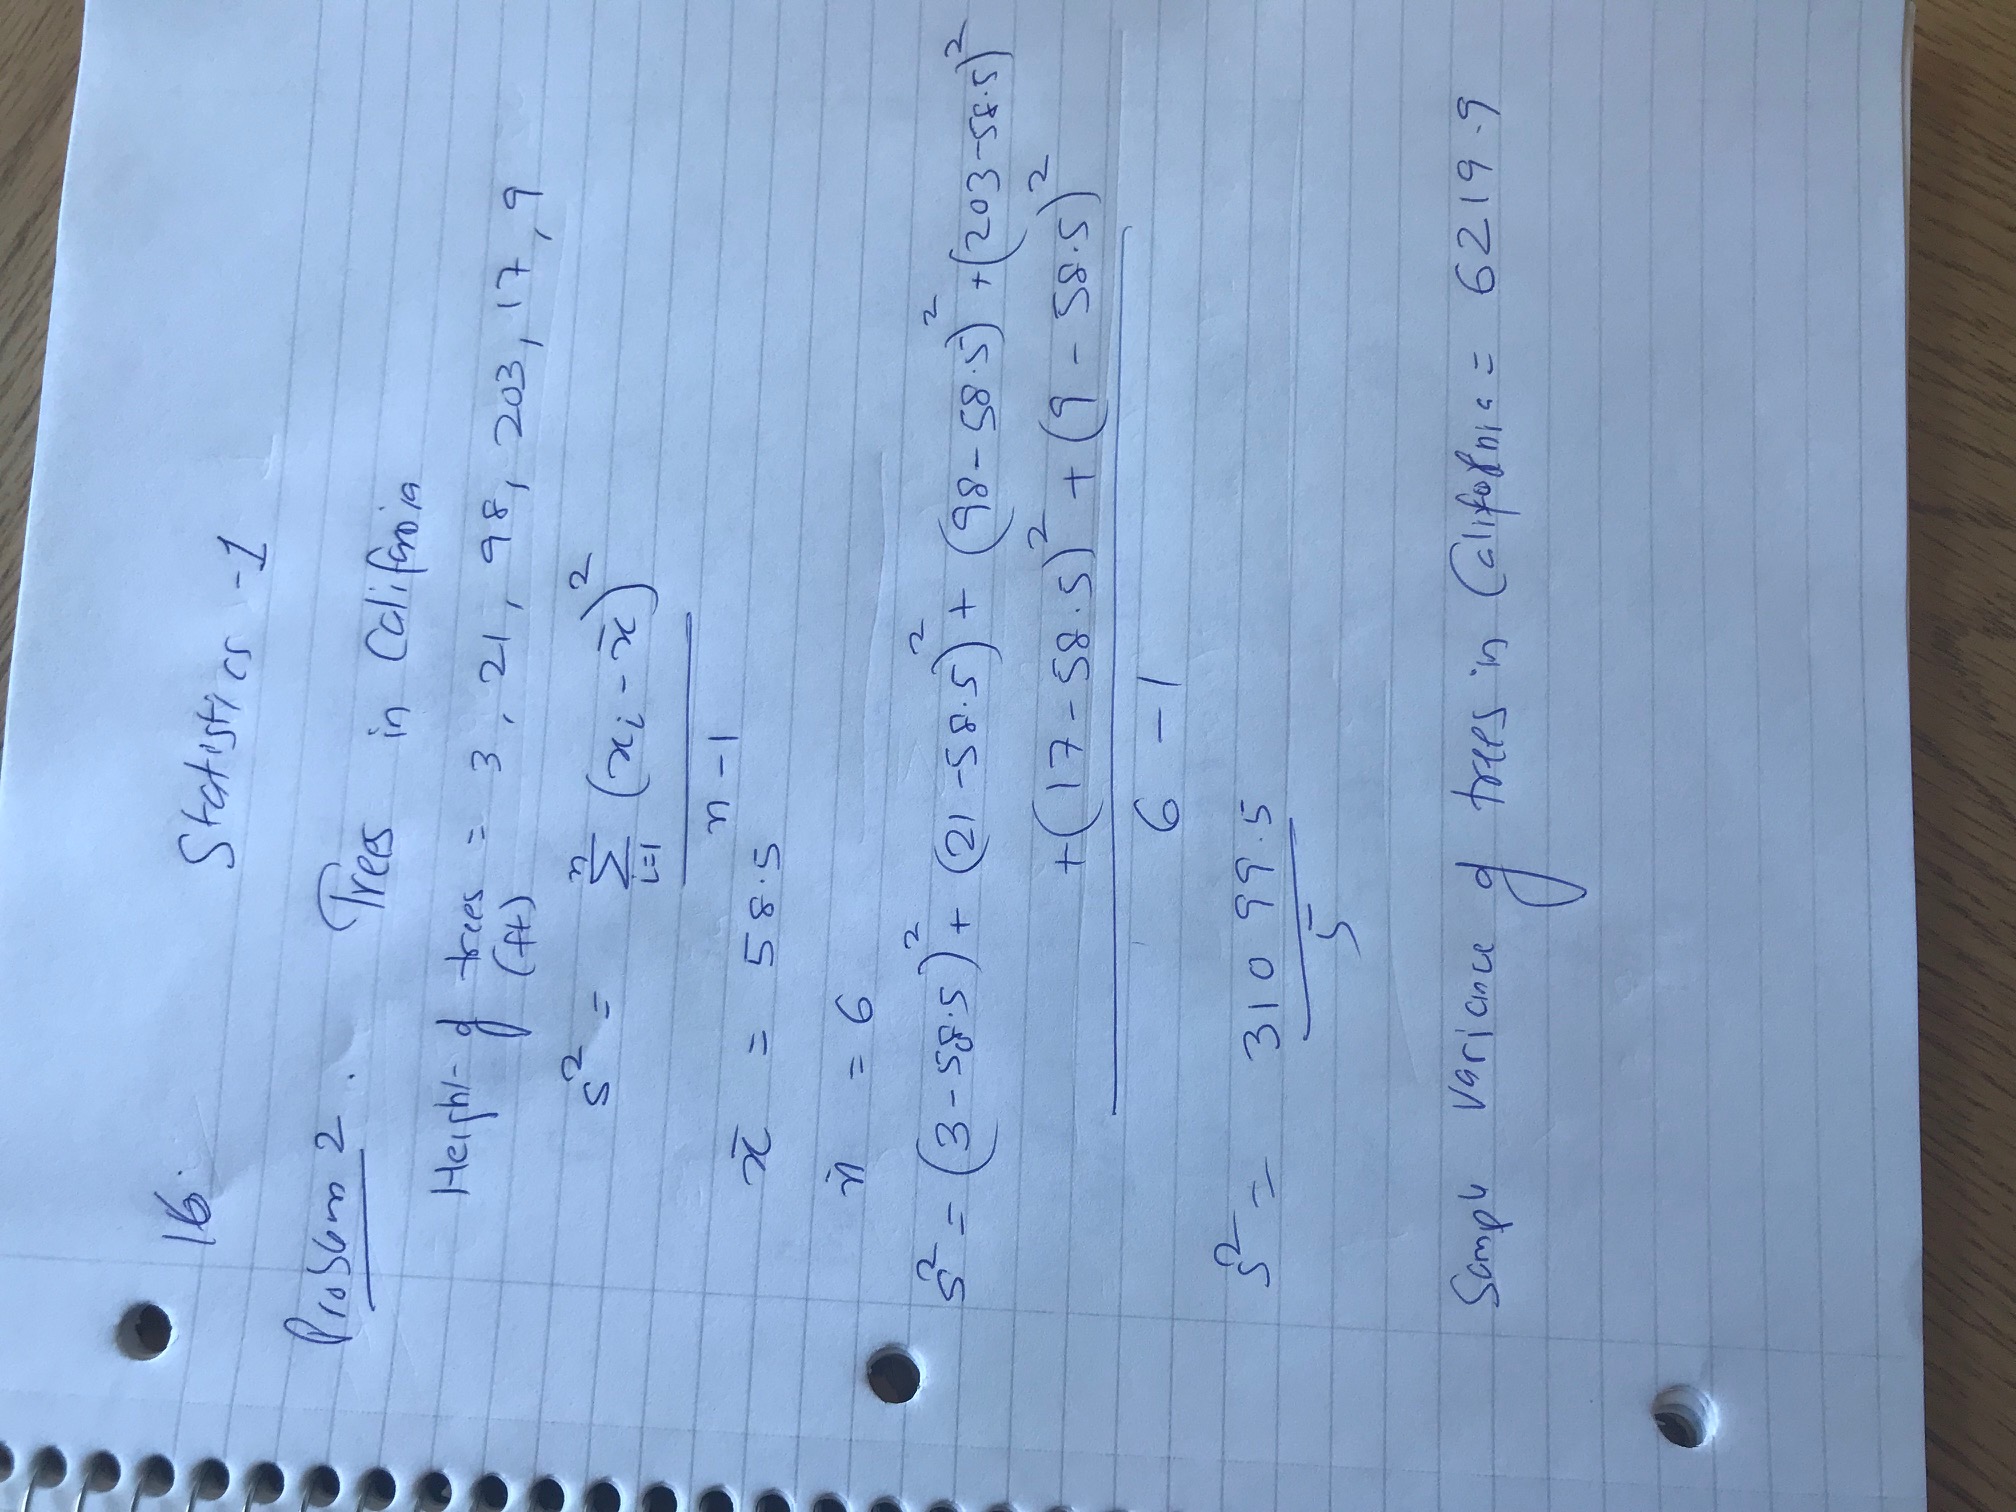 16.
Statistics -1
Problem 2. Trees in California
Height of trees = 3, 21, 98, 203, 17, 9
(ft)
s² = n Σ i=1 (xi - x̄)²
n - 1
x̄ = 58.5
n = 6
s² = (3-58.5)² + (21-58.5)² + (98-58.5)² + (203-58.5)²
+ (17-58.5)² + (9-58.5)²
6 - 1
s² = 31099.5
5
Sample variance of trees in California = 6219.9